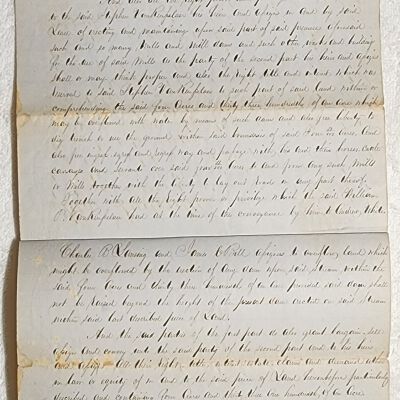 to the said Stephen Van Rensselaer his heirs and assigns in and by said
Lease of erecting and maintaining upon said part of said premises aforesaid
such and so many Mills and Mill dams and such other works and buildings
for the use of said Mills as the party of the second part his heirs and assigns
shall or may think proper and also the right title and interest which was
reserved to said Stephen Van Rensselaer to such part of said land within or
comprehending the said four Acres and thirty three hundredths of an acre which
may be overflowed with water by means of such dam and also free liberty to
dig trench or use the ground within said boundaries of said Acres, and
also free ingress egress and regress way and passage with his and their horses, Cattle
carriages and servants over said Acres to and from any such Mills
or Mills together with the liberty to lay out roads in any part thereof.
Together with all the right power or privilege which the said William
P. Van Rensselaer had at the time of the conveyance by him to Andrew White
Charles B. Lansing and James Assigns to overflow land which
might be overflowed by the erection of any dam upon said stream within the
said four Acres and thirty three hundredths of an acre provided said dam shall
not be raised beyond the height of the present dam erected on said stream
within said last described piece of Land.
And the said parties of the first part do also grant bargain, sell
assign and convey unto the said party of the second part and to his heirs
and assigns all their right, title, interest, estate, claim and demand either
in law or equity of in and to the said piece of Land hereinbefore particularly
described and containing four Acres and thirty three hundredths of an Acre